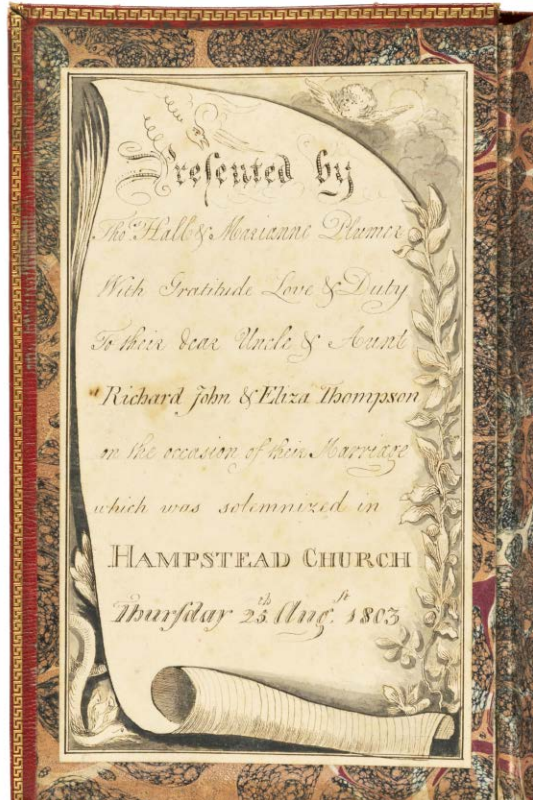 Presented by
Thos. Hall & Marianne Plumer
With Gratitude Love & Duty
To their dear Uncle & Aunt
Richard John & Eliza Thompson
on the occasion of their Marriage
which was solemnized in
HAMPSTEAD CHURCH
Thurſday 25th Augſt. 1803